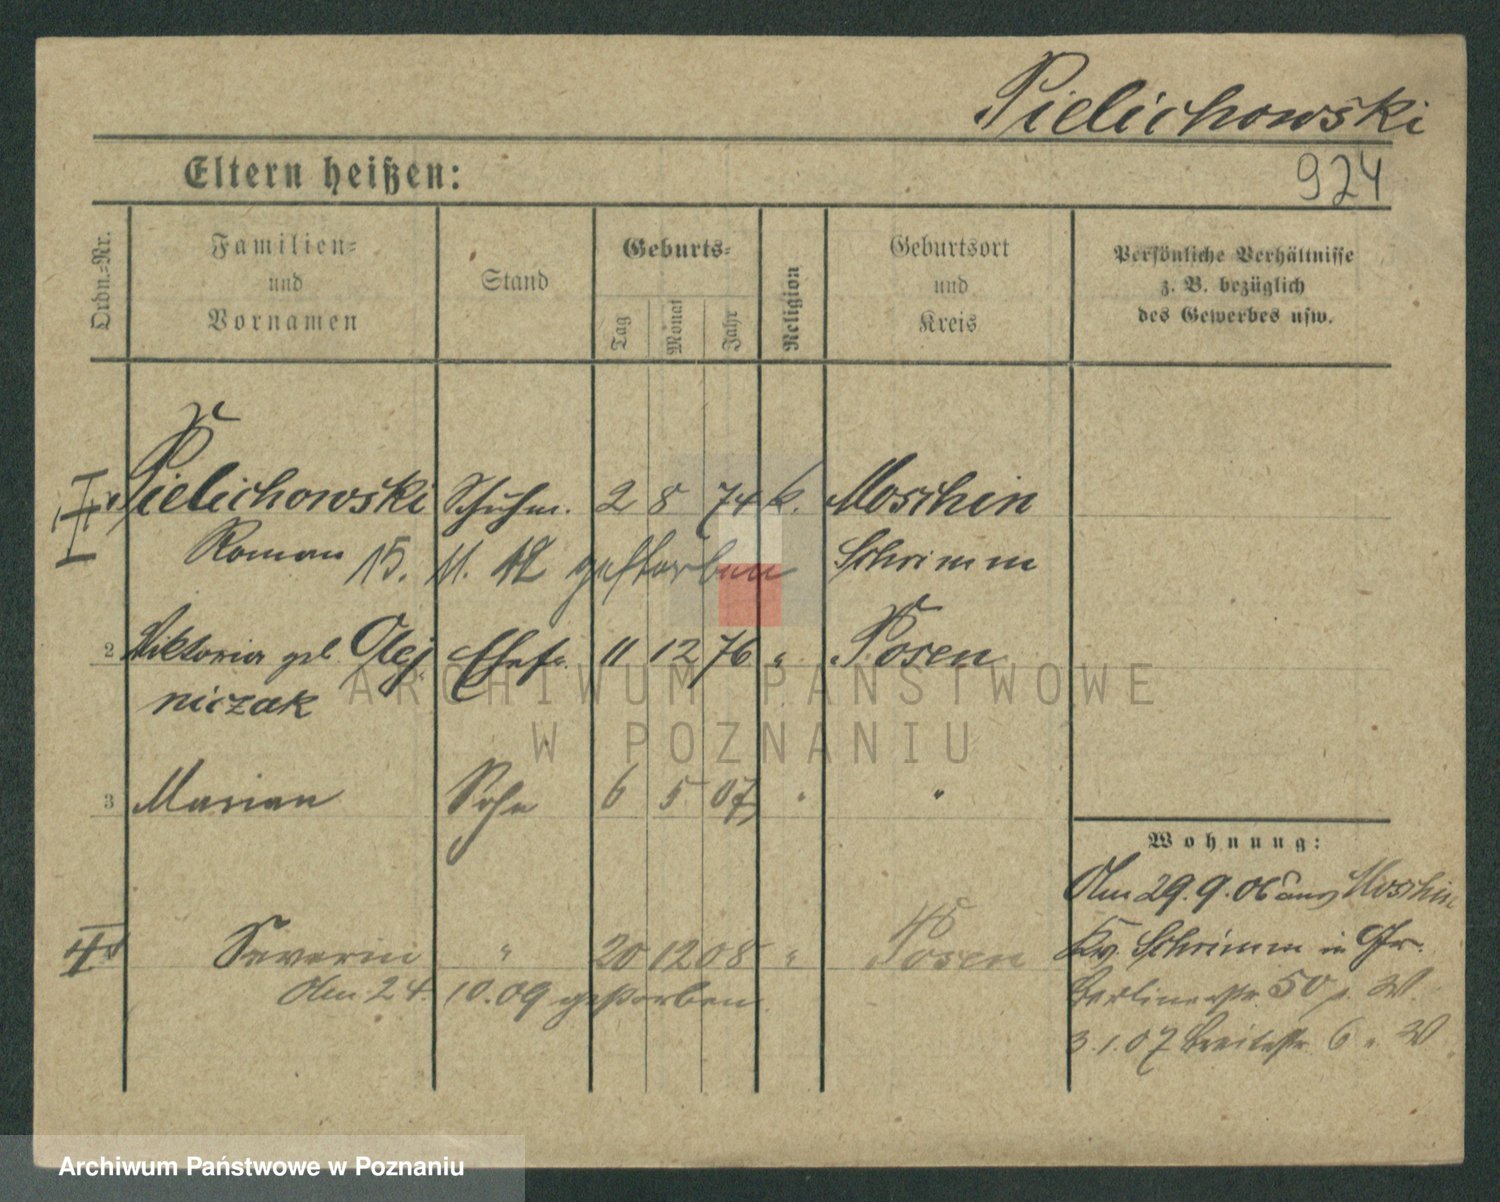 Pielichowski
Eltern heißen:
924
Ordn.-Nr.
Familien-
und
Vornamen
Stand
Geburts-
Tag
Monat
Jahr
Religion
Geburtsort
und
Kreis
Persönliche Verhältnisse
z. B. bezüglich
des Gewerbes usw.
Pielichowski Schuhm. 2 8 74 k. Moschin
Roman 15. 11. 12 gestorben Schrimm
2 Viktoria geb Olej Ehefr. 11 12 76 " Posen
niczak
ARCHIWUM PAŃSTWOWE
W POZNANIU
3 Marian Sohn 6 5 07 " "
Wohnung:
Am 29.9.06 aus Moschin
4 Severin " 20 12 08 " Posen
Kr. Schrimm in
Am 24. 10. 09 gestorben
Berlinerstr. 50 b. W.
3.1.07 Breitestr. 6 b. W
Archiwum Państwowe w Poznaniu